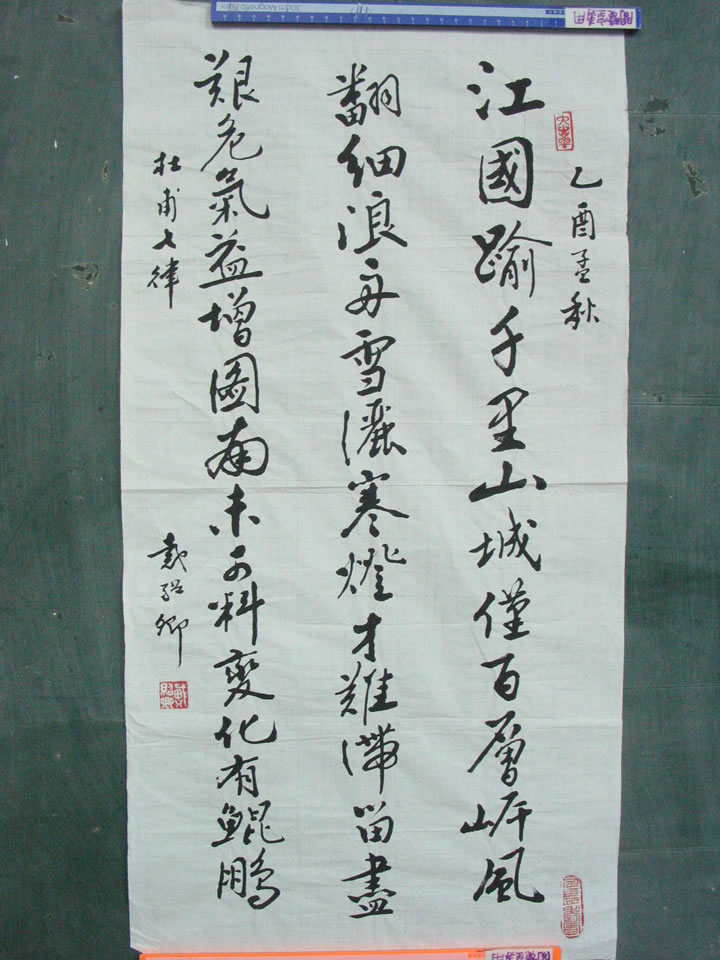 乙酉孟秋
江國踰千里山城僅百層岸風
翻細浪舟雪灑寒燈才難滯留盡
艱危氣益增圖南未可料變化有鯤鵬
杜甫七律
戴 卿
Magnetic Ruler